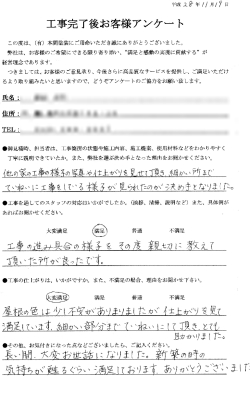 平成28年11月19日
工事完了後お客様アンケート
この度は、(有)本間塗装にご用命いただき誠にありがとうございました。
弊社は、お客様のご希望にできる限り寄り添い、“満足と感動の実現に貢献する”が
経営理念であります。
つきましては、お客様のご意見承り、今後さらに高品質なサービスを提供し、ご満足いただけ
るよう取り組みたいと思いますので、どうぞアンケートのご協力をお願いします。
氏名:
住所:
TEL:
●御見積時、担当者は、工事箇所の状態や施工内容、施工提案、使用材料などをわかりやすく
丁寧に説明できていたか、また、弊社を選ばれた理由をお聞かせください。
他の家の工事の様子の写真や仕上がりを見せて頂き細かい所まで
ていねいに工事をしている様子が見られたのが決め手となりました。
●工事を通してのスタッフの対応はいかがでしたか。(挨拶、清掃、説明など)また、具体例が
あればお聞かせください。
大変満足 満足 普通 不満足
工事の進み具合の様子をその度親切に教えて
頂いた所が良かったです。
●工事の仕上がりは、いかがですか。また、不満足の場合、理由をお聞かせ下さい。
大変満足 満足 普通 不満足
屋根の色は少し不安がありましたが仕上がりを見て
満足しています。細かい部分までていねいにして頂き、とても
助かりました。
●その他、お気付きになった点などございましたら、ご記入ください。
長い間、大変お世話になりました。新築の時の
気持ちが甦るぐらい満足しております。ありがとうございました